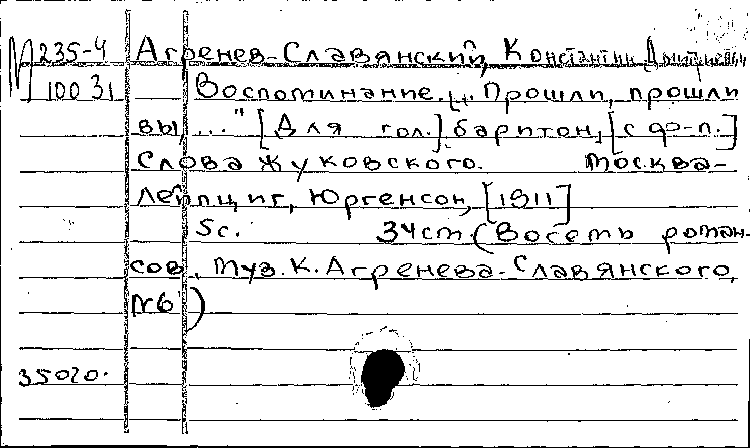 М 235-4 Агренев-Славянский, Константин Дмитриевич
10031 Воспоминание. [„Прошли, прошли
вы,..." [Для гол.] баритон, [с ф-п.]
Слова Жуковского. Москва-
Лейпциг, Юргенсон, [1911]
5с. 34см (Восемь роман-
сов. Муз. К. Агренева-Славянского,
№6)
35020.